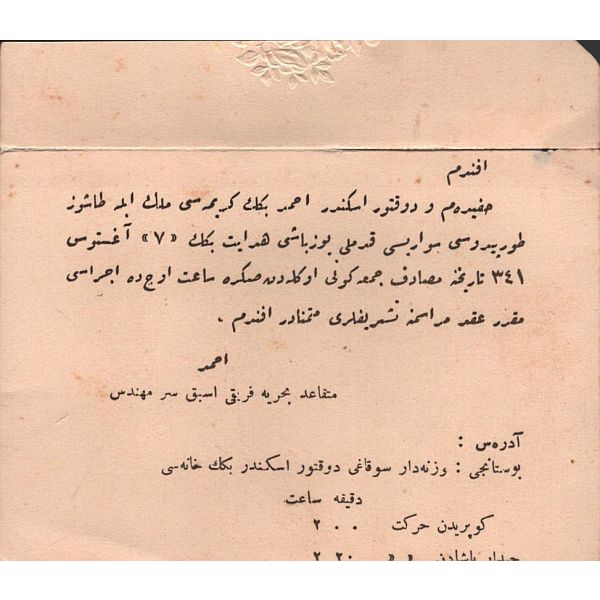 افندم
حفیده‌م و دوقتور اسكندر احمد بكك كریمه‌سی ملك ایله طاشوز
طورپیدوسی سواریسی قدملی یوزباشی هدایت بكك «٧» آغستوس
٣٤١ تاریخنه مصادف جمعه كونی اوكله‌دن صكره ساعت اوچ ده اجراسی
مقرر عقد مراسمنه تشریفلری متمنادر افندم .
احمد
متقاعد بحریه فریقی اسبق سر مهندس
آدره‌س :
بوستانجی : وزنه‌دار سوقاغی دوقتور اسكندر بكك خانه‌سی
دقیقه ساعت
كوپریدن حركت ٢ ٠ ٠
حیدر پاشادن « « ٢ ٢٠